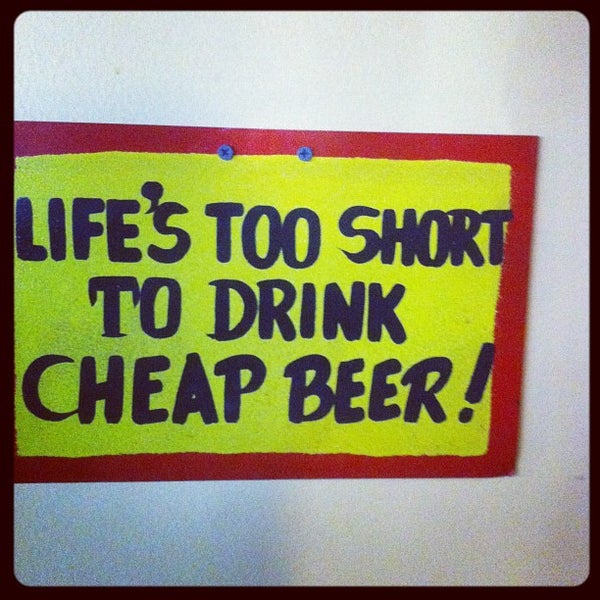 LIFE'S TOO SHORT
TO DRINK
CHEAP BEER!